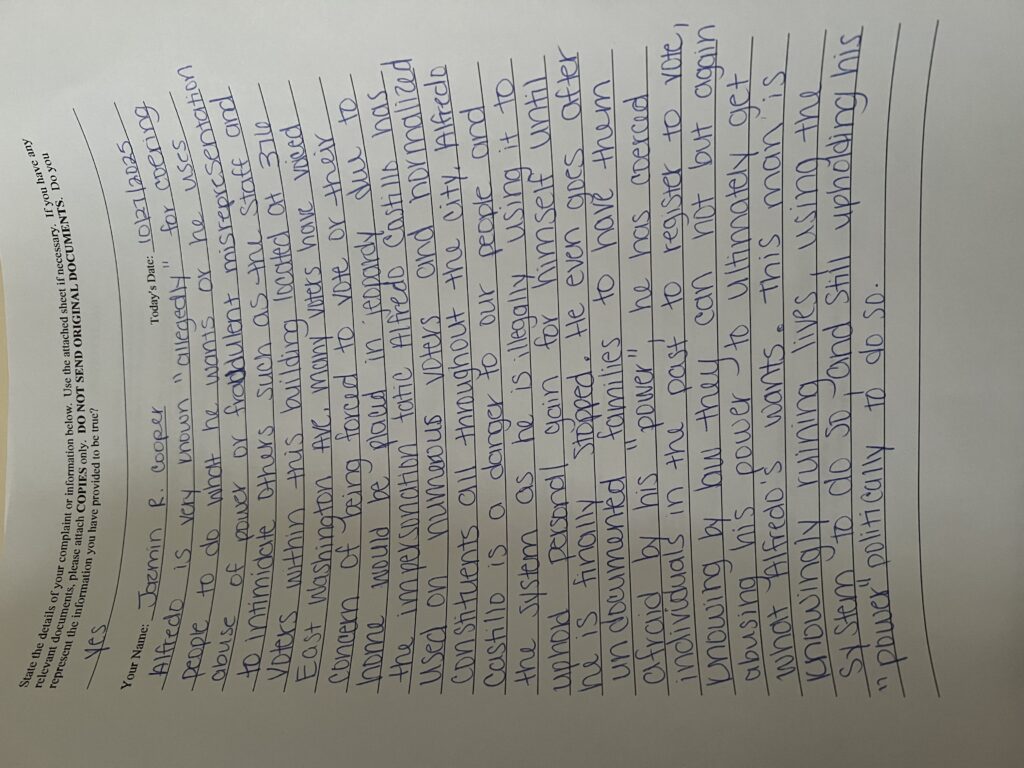 State the details of your complaint or information below. Use the attached sheet if necessary. If you have any
relevant documents, please attach COPIES only. DO NOT SEND ORIGINAL DOCUMENTS. Do you
represent the information you have provided to be true?
Yes
Your Name: Jazmin R. Cooper Today's Date: 10/27/2025
Alfredo is very known "allegedly" for coering
people to do what he wants or he uses
abuse of power or fraudulent misrepresentation
to intimidate others such as the staff and
voters within this building located at 376
East Washington Ave, many voters have voiced
concern of being forced to vote or their
home would be placed in jeopardy due to
the impersonation tatic Alfredo Castillo has
used on numerous voters and normalized
constituents all throughout the city, Alfredo
Castillo is a danger to our people and
the system as he is illegally using it to
uphold personal gain for himself until
he is finally stopped. He even goes after
undocumented families to have them
afraid by his "power", he has coerced
individuals in the past to register to vote,
knowing by law they can not but again
abusing his power to ultimately get
what Alfredo's wants. This man is
knowingly ruining lives using the
system to do so, and still upholding his
"power" politically to do so.